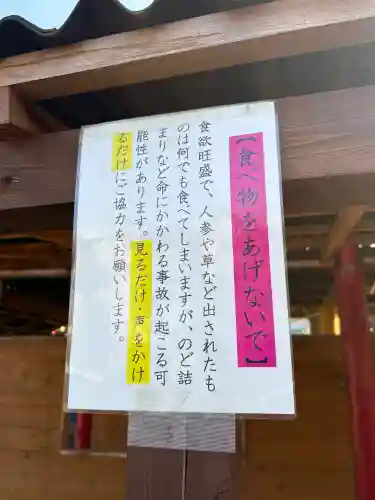 【食べ物をあげないで】
食欲旺盛で、人参や草など出されたも
のは何でも食べてしまいますが、のど詰
まりなど命にかかわる事故が起こる可
能性があります。見るだけ・声をかけ
るだけにご協力をお願いします。